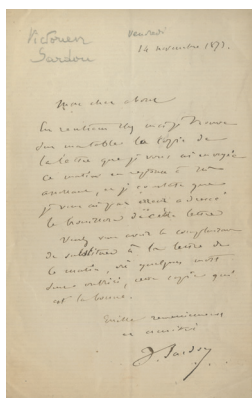 Victorien
Sardou
Vendredi
14 novembre 187
Mon cher
En rentrant chez moi je trouve
sur ma table la copie de
la lettre que je vous ai envoyée
ce matin en réponse à
et je constate que
je vous ai par erreur adressé
le brouillon de cette lettre
Veuillez avoir la complaisance
de substituer à la lettre de
ce matin, où quelques mots
sont oubliés, cette copie qui
est la bonne.
Mille remerciements
et amitiés
V. Sardou